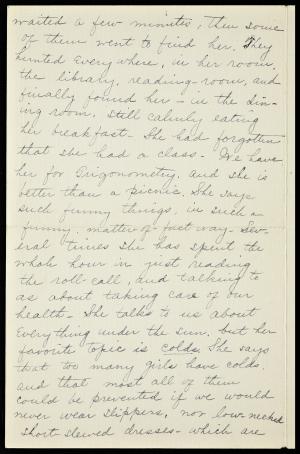 waited a few minutes, then some
of them went to find her. They
hunted everywhere, in her room,
the library, reading-room, and
finally found her - in the din-
ing room, still calmly eating
her breakfast - She had forgotten
that she had a class - We have
her for Trigonometry, and she is
better than a picnic. She says
such funny things, in such a
funny, matter-of-fact way - Sev-
eral times she has spent the
whole hour in just reading
the roll-call, and talking to
us about taking care of our
health - She talks to us about
everything under the sun, but her
favorite topic is colds. She says
that too many girls have colds,
and that most all of them
could be prevented if we would
never wear slippers, nor low-necked
short sleeved dresses - which are